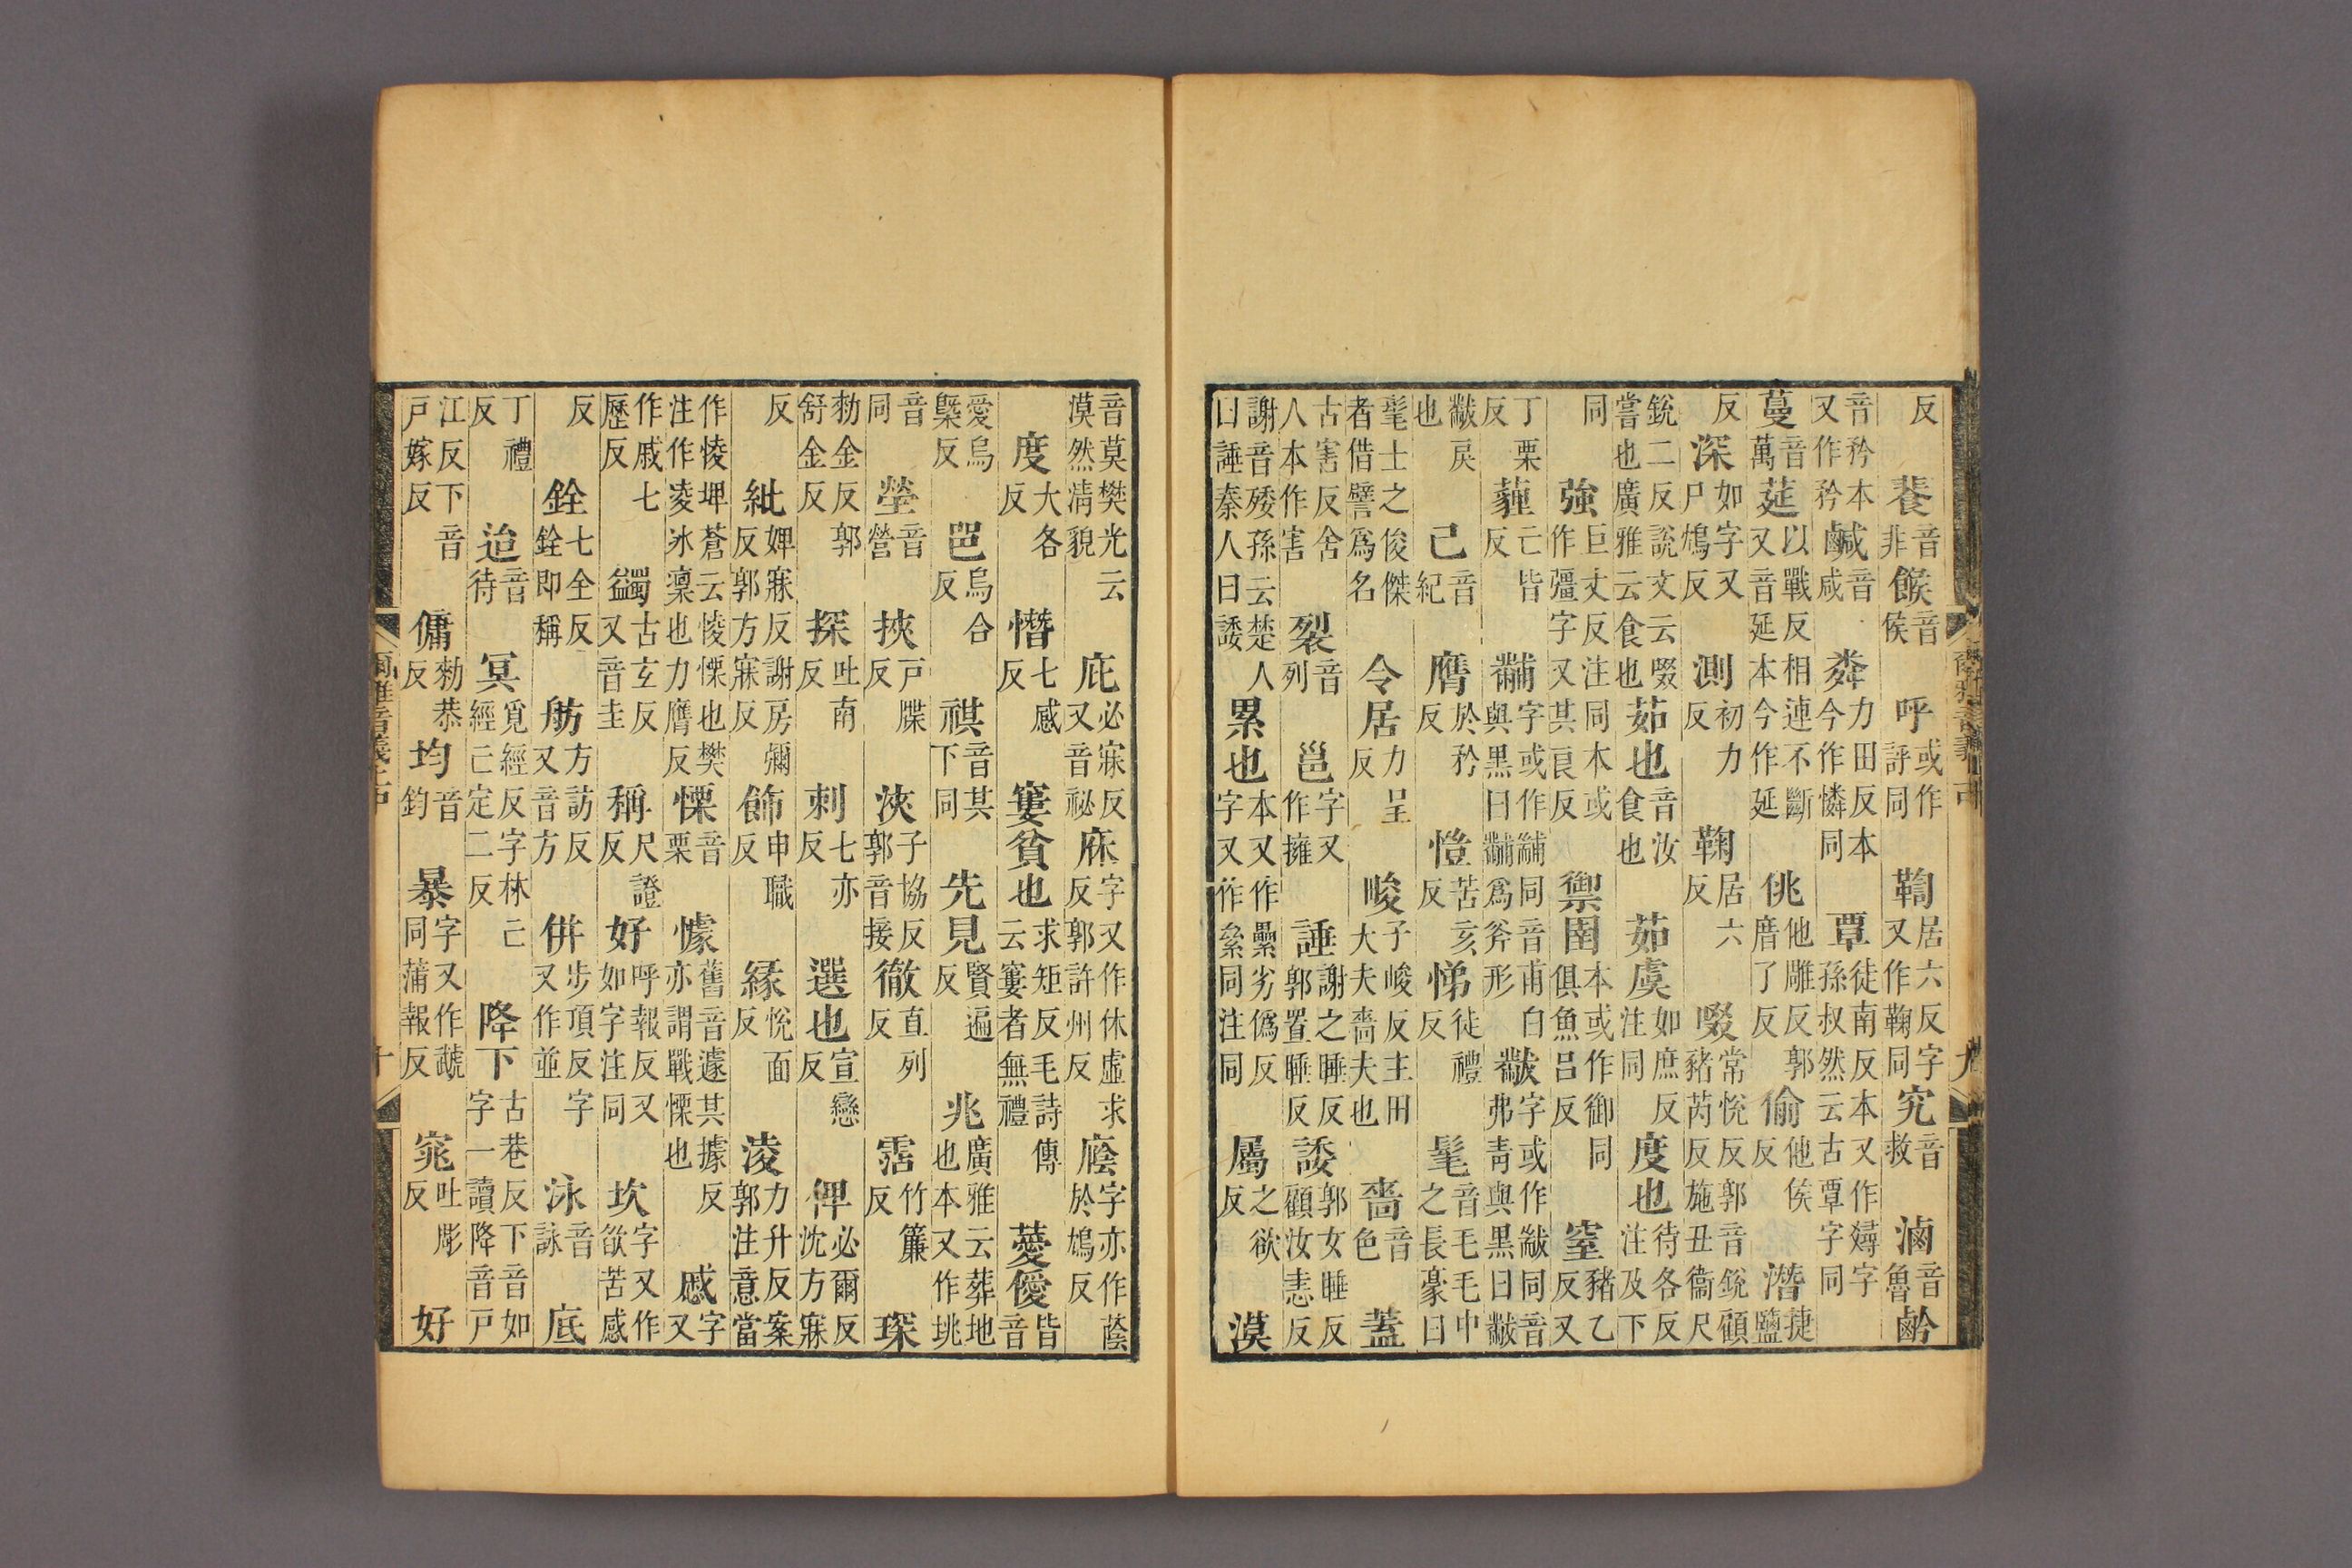 反餥音非餱音侯呼或作評同鞫居六反字又作鞠同究音救滷音魯
音矜本又作矜鹹音咸粦力田反本今作憐同覃徒南反本又作燖字孫叔然云古覃字同
蔓音萬莚以戰反又音延相連不斷本今作延佻他雕反郭唐了反偷他侯反潛捷鹽
反深如字又尸鴆反測初力反鞫居六反啜常悅反郭音銳顧豬芮反施丑衞尺
銳二反說文云啜嘗也廣雅云食也茹也音汝食也茹虞如庶反注同度也待各反注及下
同強巨丈反注同本或作彊字又其良反禦圉本或作御同俱魚呂反窒豬乙反又
丁栗反薶亡皆反黼字或作䋠同音甫白與黑曰黼爲斧形黻字或作黻同音弗青與黑曰黻
黻戾也己音紀膺於矜反愷苦亥反悌徒禮反髦音毛毛中之長豪曰
髦士之俊傑者借譬爲名令居力呈反畯子峻反主田大夫嗇夫也嗇音色蓋
古害反舍人本作害裂音列邕字又作擁諈謝之睡反郭置睡反諉郭女睡反顧汝恚反
謝音矮孫云楚人曰諈秦人曰諉累也本又作纍字又作絫同劣僞反注同屬之欲反漠
音莫樊光云漠然清貌庇必寐反又音祕庥字又作休虛求反郭許州反廕字亦作蔭於鴆反
度大各反憯七感反窶貧也求矩反毛詩傳云窶者無禮薆僾皆音
愛烏㮣反邑烏合反祺音其下同先見賢遍反兆廣雅云葬地也本又作垗
音同塋音營挾戶牒反浹子協反郭音接徹直列反霑竹簾反琛
勑金反郭舒金反探吐南反刺七亦反選也宣戀反俾必爾反沈方寐
反紕婢寐反謝房彌反郭方寐反飾申職反緣悅面反淩力升反案郭注意當
作㥄埤蒼云㥄慄也樊注作凌氷凜也力膺反慄音栗懅舊音遽其據反亦謂戰慄也慼字又
作戚七歷反蠲古玄反又音圭稱尺證反好呼報反又如字注同坎字又作欿苦感
反銓七全反銓即稱舫方訪反又音方併步頂反字又作並泳音詠底
丁禮反迨音待冥覓經反字林亡經亡定二反降下古巷反下音如字一讀降音戶
江反下音戶嫁反傭勑恭反均音鈞暴字又作虣蒲報反窕吐彫反好